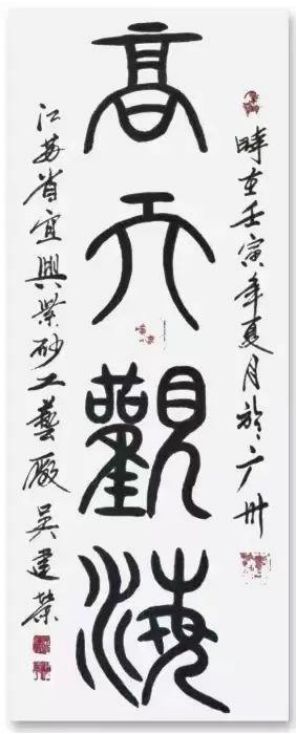 時在壬寅年夏月於广州
高天觀海
江苏省宜興紫砂工藝廠吴建榮